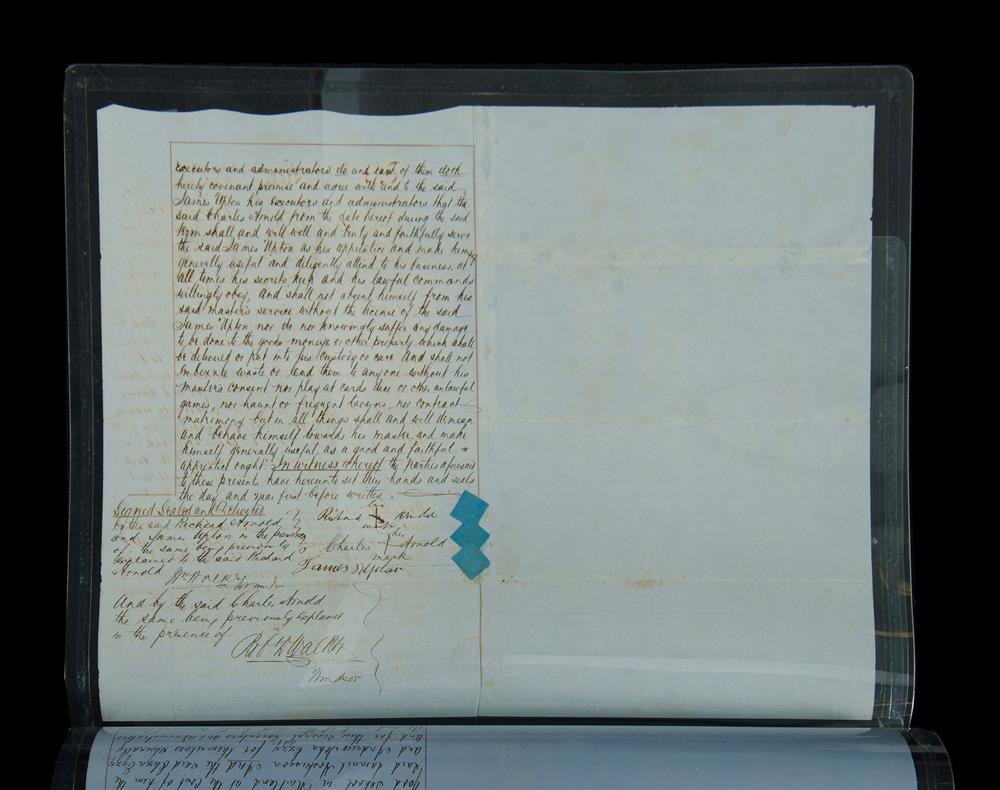 executors and administrators do and each of them doth
hereby covenant promise and agree with and to the said
James Upton his Executors and administrators that the
said Charles Arnold from the date hereof during the said
term shall and will well and truly and faithfully serve
the said James Upton as his apprentice and make himself
generally useful and diligently attend to his business at
all times his secrets keep and his lawful commands
willingly obey, and shall not absent himself from his
said master's service without the license of the said
James Upton nor do nor knowingly suffer any damage
to be done to the goods moneys or other property which shall
be delivered or put into his custody or care and shall not
imbezzle waste or lend them to anyone without his
master's consent nor play at cards dice or other unlawful
games, nor haunt or frequent taverns, nor contract
matrimony but in all things shall and will demean
and behave himself towards his master, and make
himself generally useful, as a good and faithful
apprentice ought. In witness whereof the parties aforesaid
to these presents have hereunto set their hands and seals
the day and year first before written.
Signed Sealed and Delivered
by the said Richard Arnold
and James Upton in the presence
of the same being previously
explained to the said Richard
Arnold
Windsor
Richard Arnold
mark
his
Charles Arnold
mark
James Upton
And by the said Charles Arnold
the same being previously explained
in the presence of
Robt Walker
Windsor
the
and Andrew for themselves severally
said Samuel And the said Eliza
good School in Maitland at the cost of him the